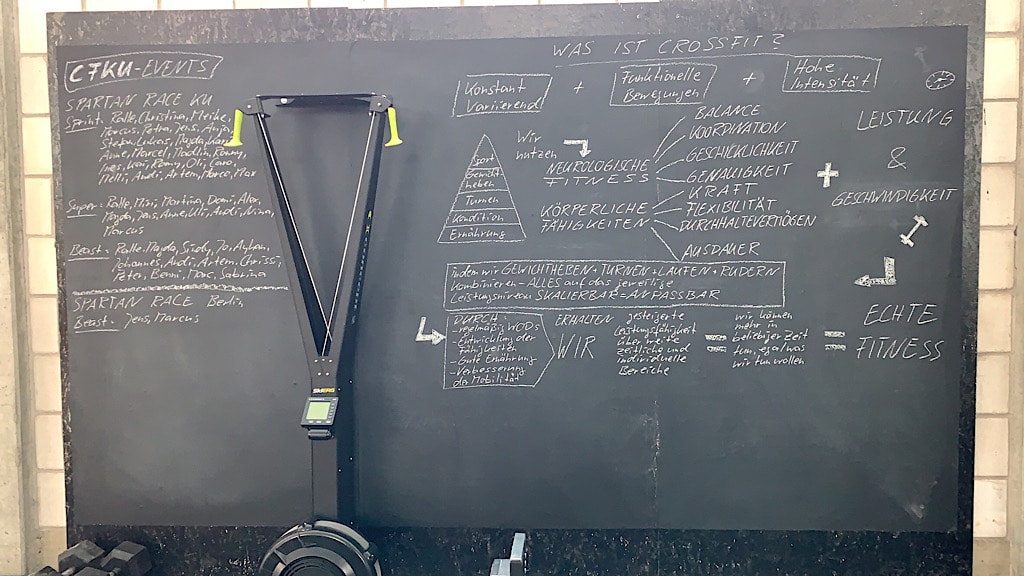 C7KU-EVENTS
SPARTAN RACE KU
Sprint: Ralle, Christina, Meike,
Marcus, Petra, Jens, Anja
Stefan, Lukas, Majda,
Anne, Marcel, Ronny,
Leo, Romy, Oli, Caro
Melli, Andi, Artem, Marco, Max
Super: Ralle, Mini, Martina, Domi, Alex,
Majda, Jens, Anne, Uli, Andi, Nina,
Marcus
Beast: Ralle, Majda, Sindy, Jo, Ayhan,
Johannes, Andi, Artem, Chrissi,
Peter, Benni, Marc, Sabrina
SPARTAN RACE Berlin
Beast: Jens, Marcus
SKIERG
WAS IST CROSSFIT?
Konstant
Variierend
+
Funktionelle
Bewegungen
+
Hohe
Intensität
Sport
Gewicht
heben
Turnen
Kondition
Ernährung
Wir
nutzen
NEUROLOGISCHE
FITNESS
BALANCE
KOORDINATION
GESCHICKLICHKEIT
GENAUIGKEIT
KÖRPERLICHE
FÄHIGKEITEN
KRAFT
FLEXIBILITÄT
DURCHHALTEVERMÖGEN
AUSDAUER
+
LEISTUNG
&
GESCHWINDIGKEIT
Indem wir GEWICHTHEBEN + TURNEN + LAUFEN + RUDERN
Kombinieren - ALLES auf das jeweilige
Leistungsniveau SKALIERBAR = ANPASSBAR
DURCH:
- regelmäßig WODs
- Entwicklung der
Fähigkeiten
- Gute Ernährung
- Verbesserung
der Mobilität
ERHALTEN
WIR
gesteigerte
Leistungsfähigkeit
über breite
zeitliche und
individuelle
Bereiche
=
wir können
mehr in
beliebiger Zeit
tun, egal was
wir tun wollen
=
ECHTE
FITNESS